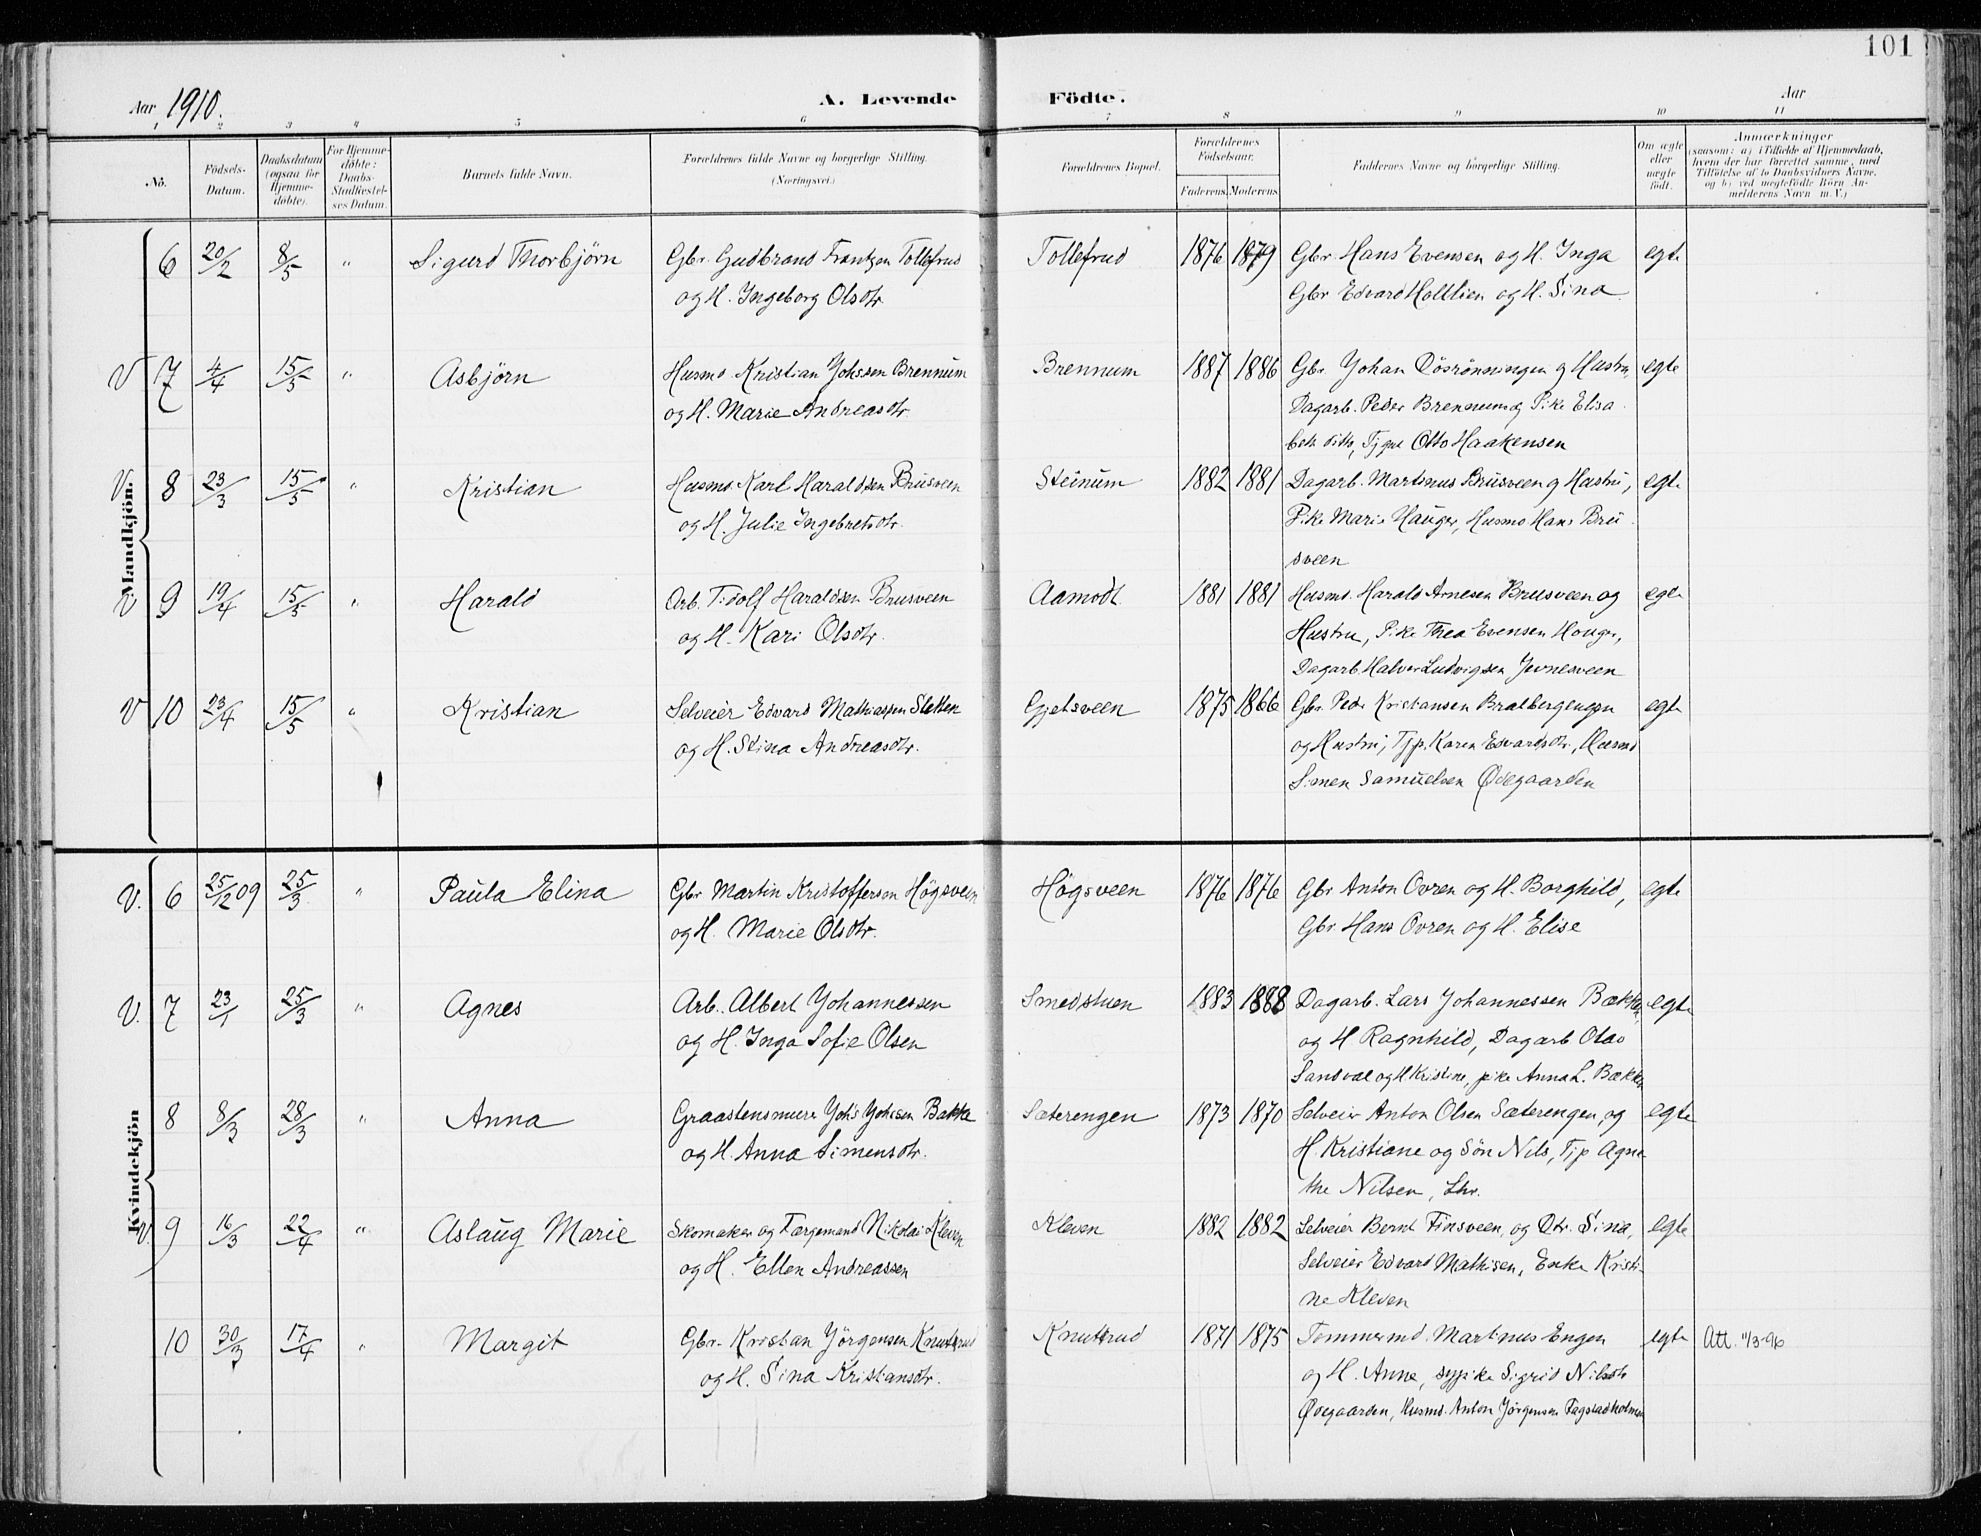 101
Aar 1910. A. Levende Födte. Aar
1 2 3 4 5 6 7 8 9 10 11
No. Födsels-Datum. Daabsdatum (ogsaa for Hjemme-döbte). For Hjemme-döbte: Daabs-Stadfæstel-ses Datum. Barnets fulde Navn. Forældrenes fulde Navne og borgerlige Stilling. (Næringsvei.) Forældrenes Bopæl. Forældrenes Födselsaar. Faderens. Moderens. Faddernes Navne og borgerlige Stilling. Om ægte eller uægte födt. Anmærkninger (saasom: a) i Tilfælde af Hjemmedaab, hvem der har forrettet samme, med Tilföielse af to Daabsvidners Navne, og b) ved uægtefödte Börn An-melderens Navn m. V.)
Mandkjön.
6 20/2 8/5 " Sigurd Thorbjörn Gbr. Gudbrand Frantzen Tollefrud Tollefrud 1876 1879 Gbr Hans Evensen og H. Inga egte
og H. Ingeborg Olsdtr Gbr Edvard Holtlien og H. Sina
V 7 4/4 15/5 " Asbjörn Husmd Kristian Johssen Brennum Brennum 1887 1886 Gbr. Johan Dösrönningen og Hustru, egte
og H. Marie Andreasdtr. Dagarb. Peder Brennum og Pike Elisa
beth ditto, Tjgut Otto Haakensen
V. 8 23/3 15/5 " Kristian Husmd Karl Haraldsen Brusveen Steinum 1882 1881 Dagarb. Martinus Brusveen og Hustru, egte
og H. Julie Ingebretsdtr. Pike Marie Hauger, Husmd Hans Bru
sveen
V 9 19/4 15/5 " Harald Arb. Tidolf Haraldsen Brusveen Aamodt 1881 1881 Husmd. Harald Arnesen Brusveen og egte
og H. Kari Olsdtr. Hustru, Pike Thea Evensen Houger,
Dagarb. Halvor Ludvigsen Jevnesveen
V 10 23/4 15/5 " Kristian Selveier Edvard Mathiassen Sletten Gjetsveen 1875 1866 Gbr Peder Kristiansen Bralbergengen egte
og H. Stina Andreasdtr. og Hustru, Tjp. Karen Edvardsdtr., Husmd
Simen Samuelsen Ødegaarden
Kvindekjön
V. 6 25/12 09 25/3 " Paula Elina Gbr Martin Kristofferson Högsveen Högsveen 1876 1876 Gbr Anton Ovren og H. Borghild, egte
og H. Marie Olsdtr. Gbr Hans Ovren og H. Elise
V. 7 23/1 25/3 " Agnes Arb. Albert Johannessen Smedstuen 1883 1888 Dagarb. Lars Johannessen Bækken, egte
og H. Inga Sofie Olsen og H Ragnhild, Dagarb Olav
Sandval og H Kristine, pike Anna L. Bækken
8 8/3 28/3 " Anna Graastensmurer Johs Johssen Bakke Sæterengen 1873 1870 Selveier Anton Olsen Sæterengen, og egte
og H. Anna Simensdtr. H. Kristiane og Sön Nils, Tjp Agna
the Nilsen, Lhr.
V. 9 16/3 22/4 " Aslaug Marie Skomaker og Færgemand Nikolai Kleven Kleven 1882 1882 Selveier Bernt Finsveen, og Dtr. Sina, egte
og H. Ellen Andreassen Selveier Edvard Mathisen, Enke Kristi-
ne Kleven
10 30/3 17/4 " Margit Gbr. Kristian Jörgensen Knutsrud Knutsrud 1871 1875 Tommermd Martinus Engen egte Att. 11/3-96
og H. Sina Kristiansdtr. og H. Anne, sypike Sigrid Nilsdtr
Ødegaarden, Husmd. Anton Jörgensen Fagstadholmen